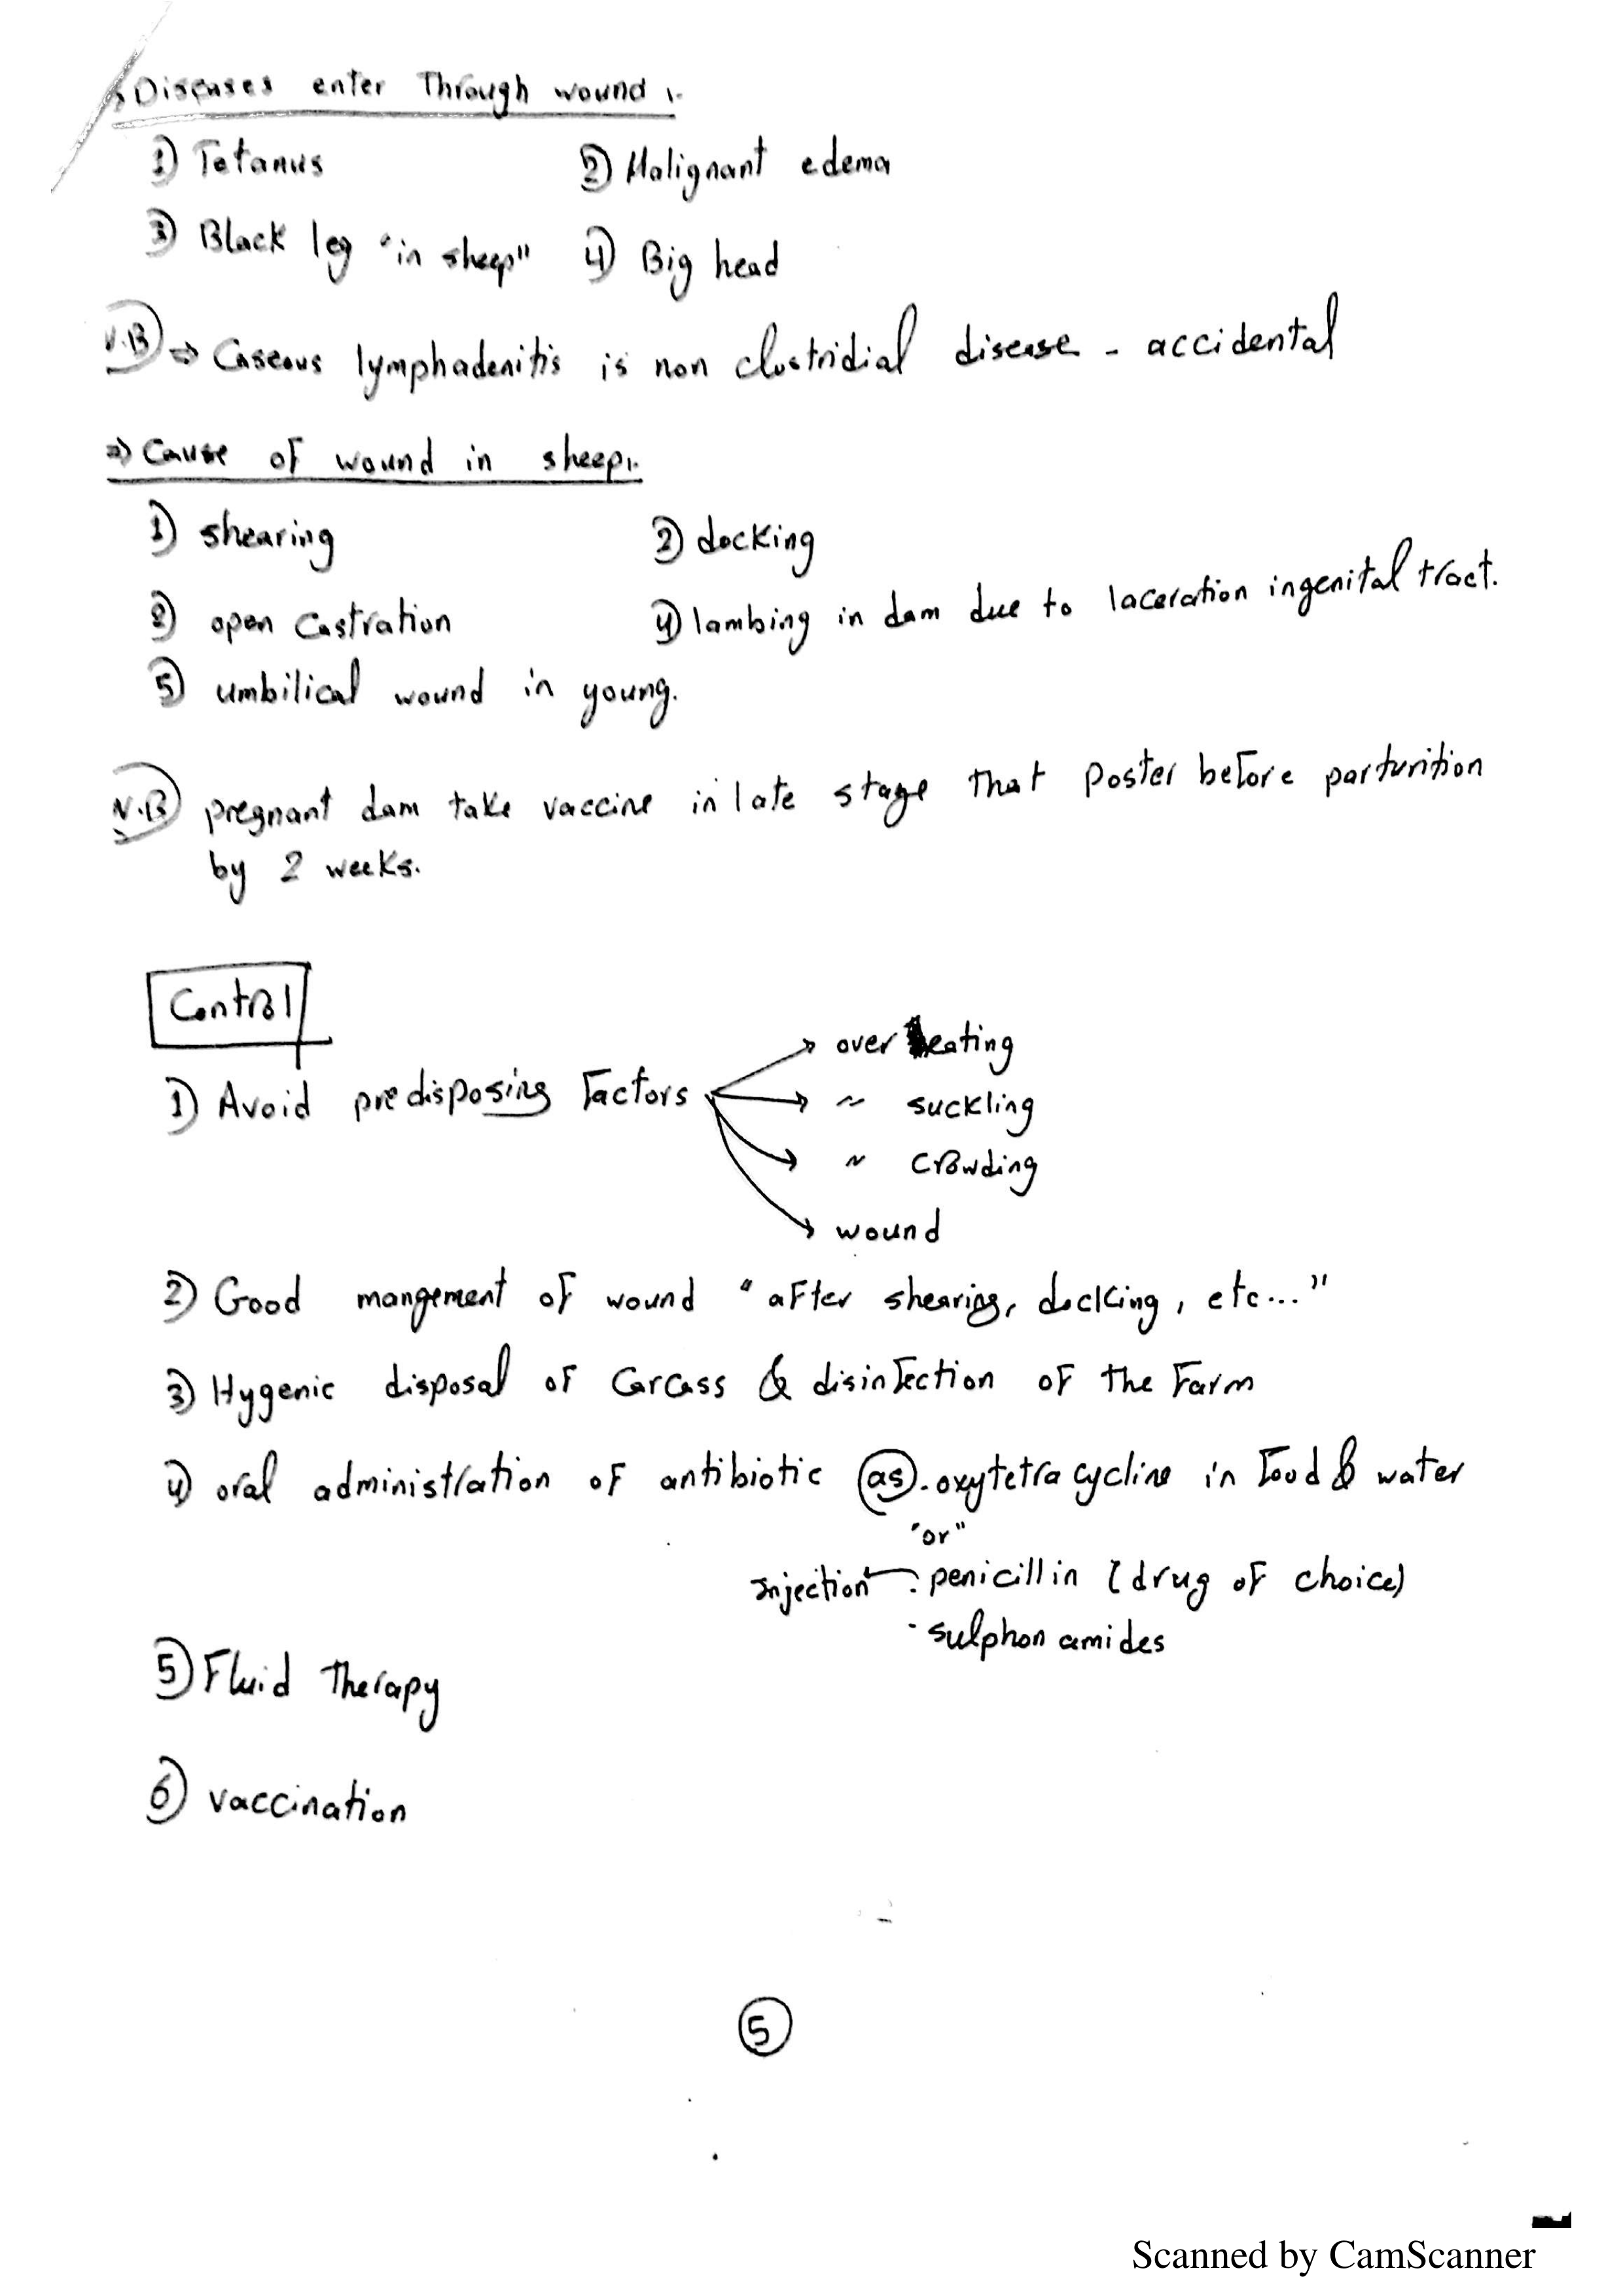 Diseases enter Through wound :-
1) Tetanus 2) Malignant edema
3) Black leg "in sheep" 4) Big head
N.B ⇒ Caseous lymphadenitis is non clostridial disease - accidental
⇒ Cause of wound in sheep :-
1) shearing 2) docking
3) open castration 4) lambing in dam due to laceration in genital tract.
5) umbilical wound in young.
N.B pregnant dam take vaccine in late stage that poster before parturition
by 2 weeks.
Control
1) Avoid predisposing factors → over eating
→ ~ suckling
→ ~ crowding
→ wound
2) Good mangement of wound "after shearing, docking, etc..."
3) Hygenic disposal of carcass & disinfection of the farm
4) oral administration of antibiotic as - oxytetracycline in food & water
"or"
injection ← - penicillin (drug of choice)
- sulphonamides
5) Fluid Therapy
6) vaccination
5
Scanned by CamScanner